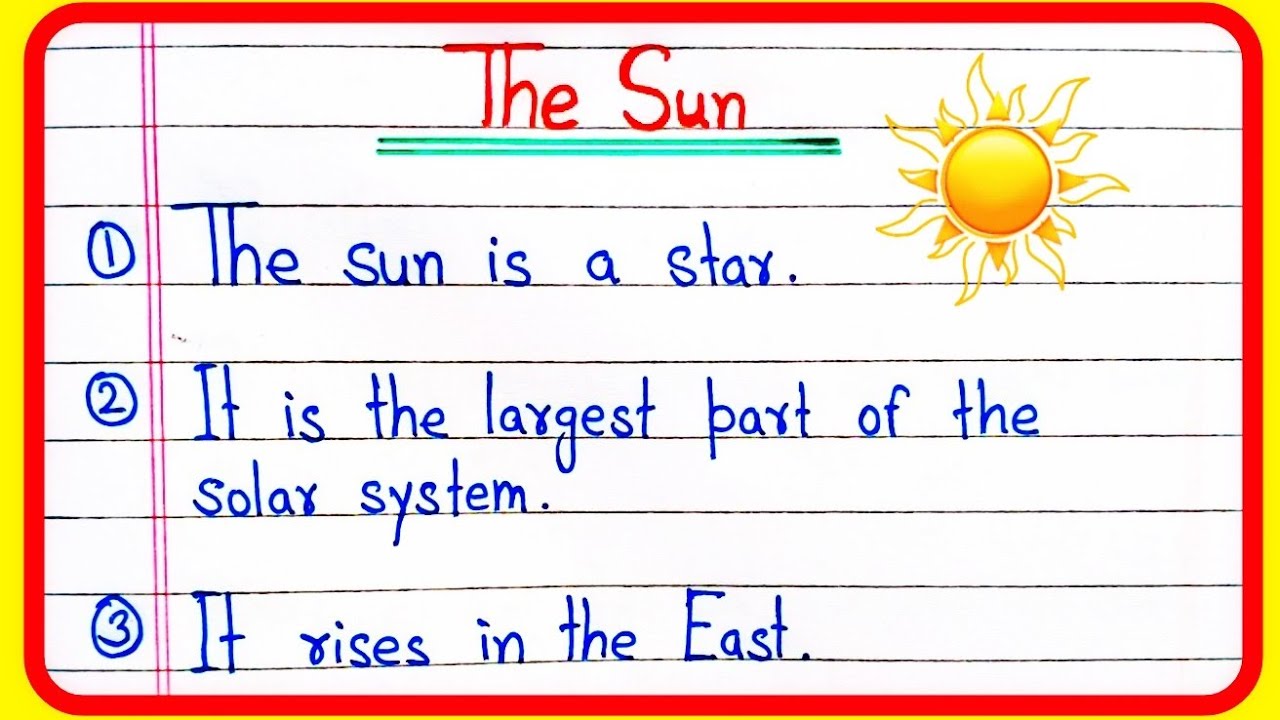 The Sun
① The sun is a star.
② It is the largest part of the
solar system.
③ It rises in the East.